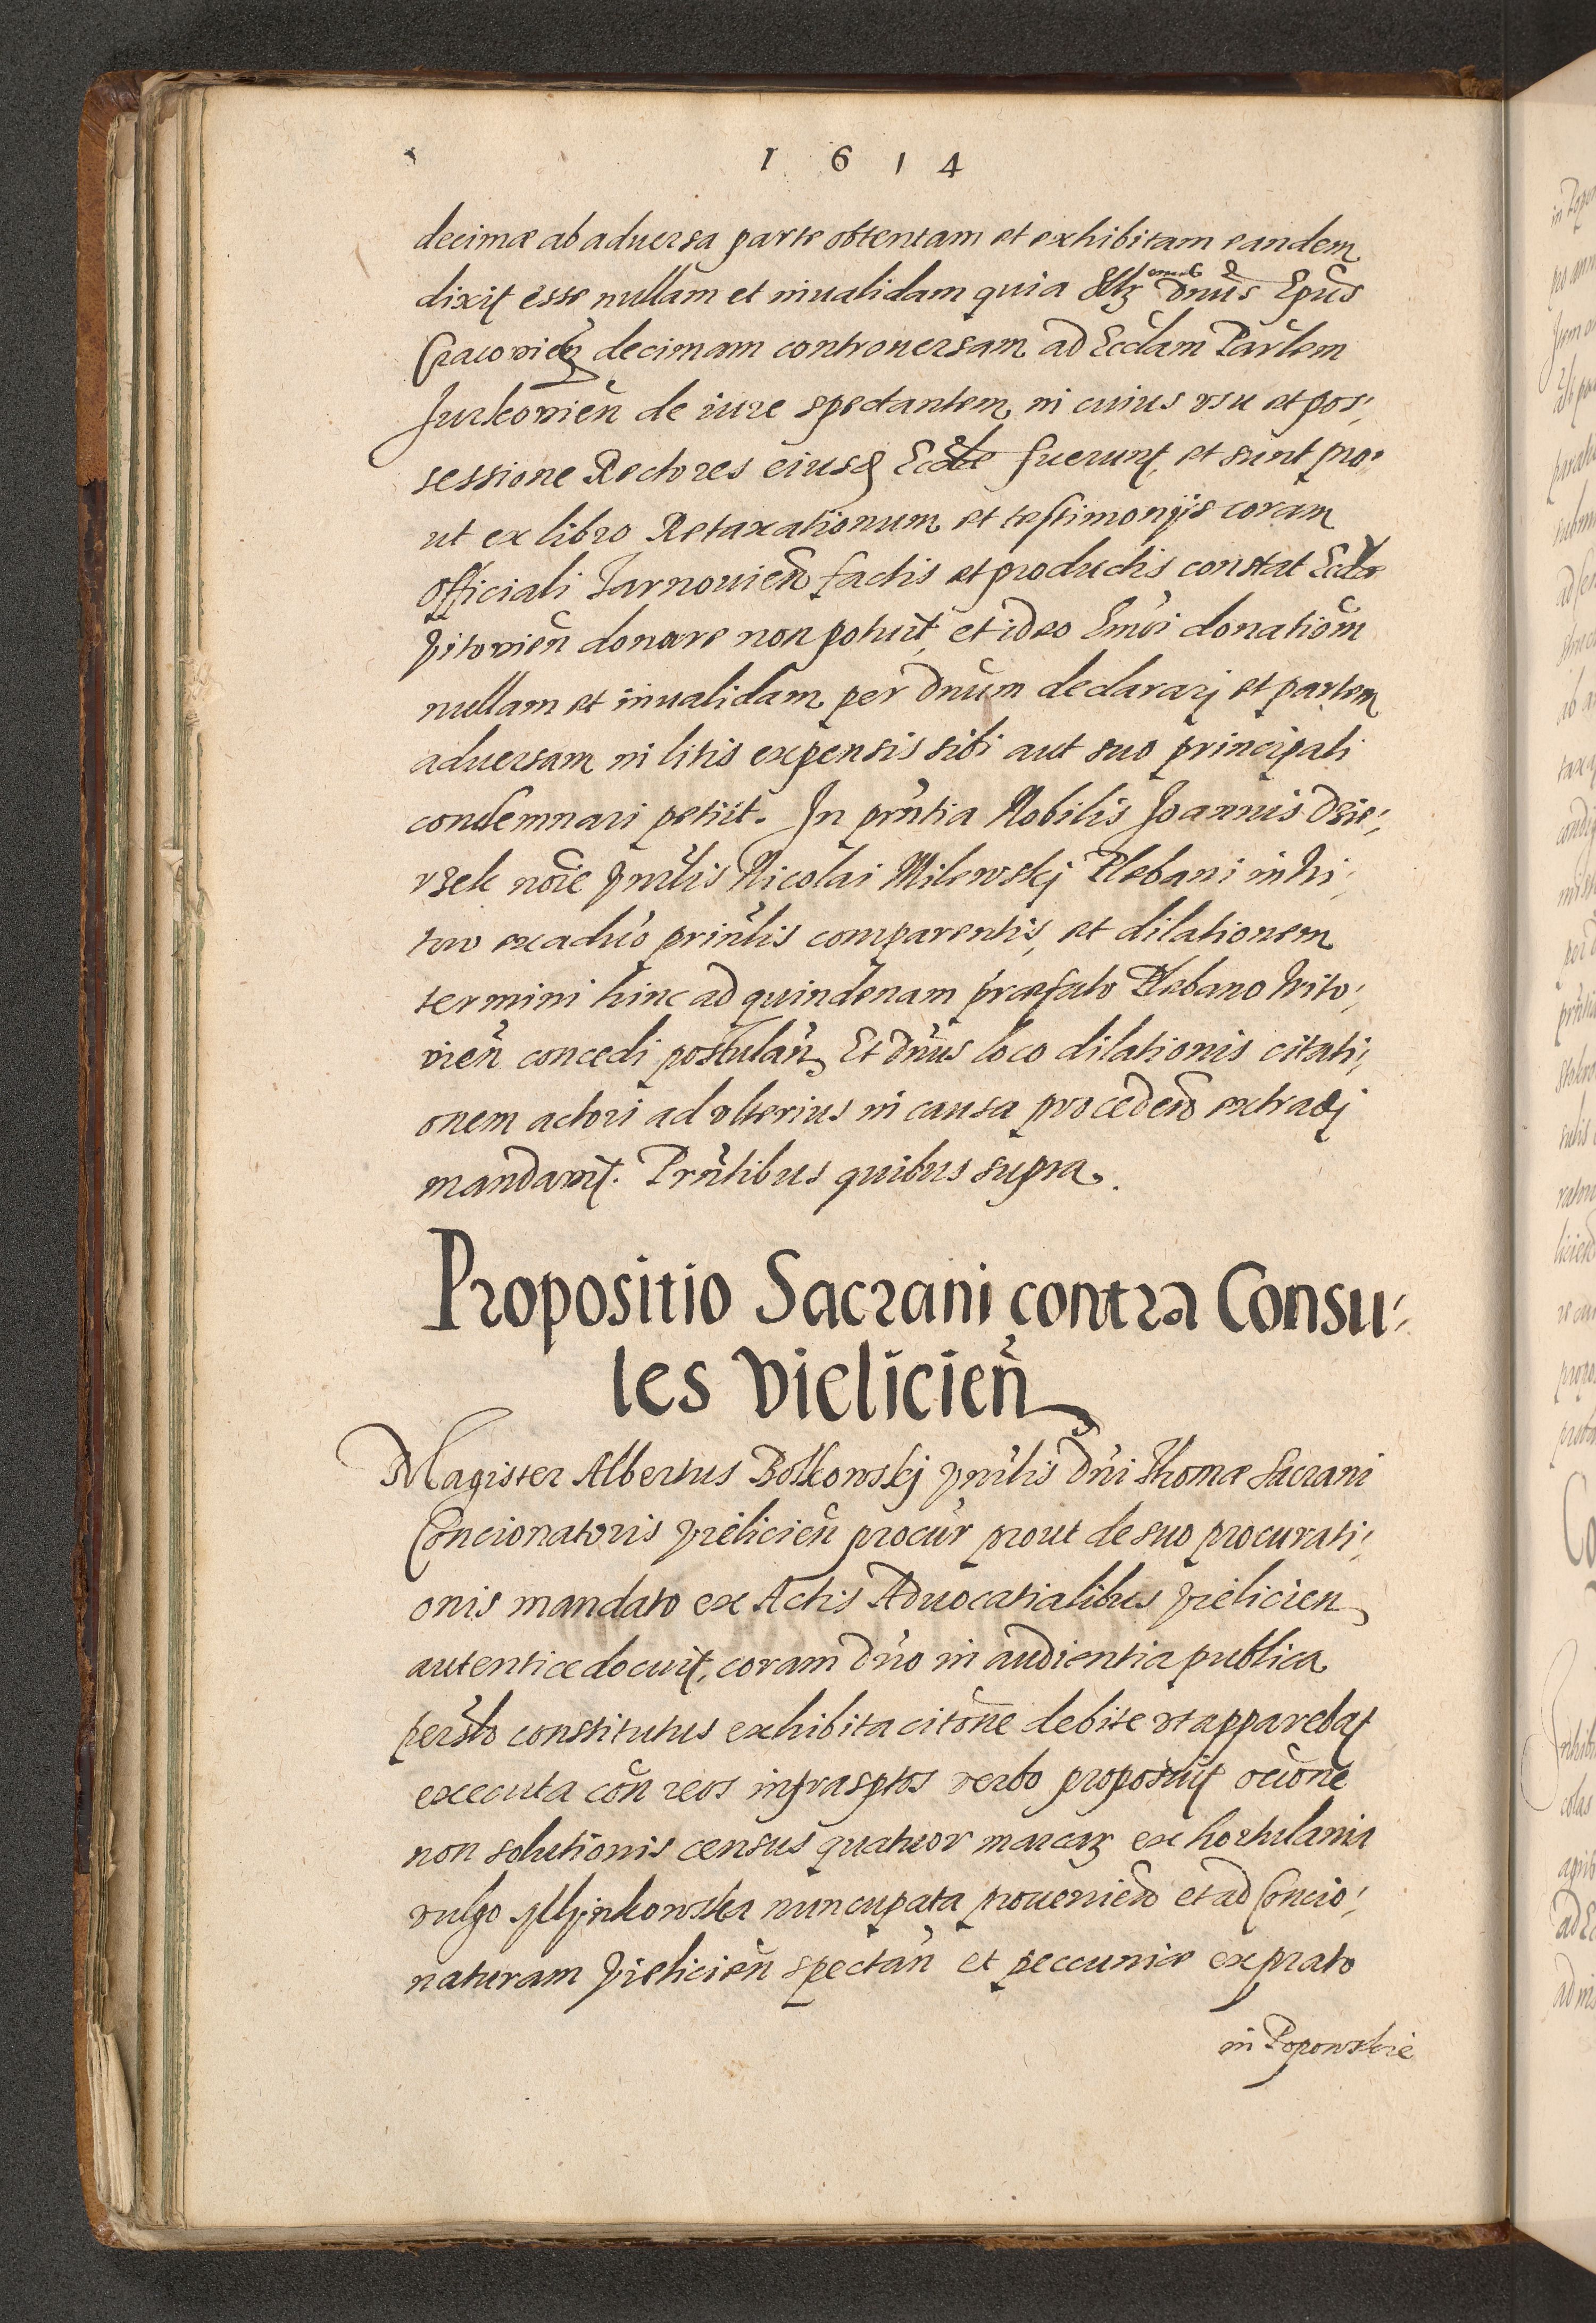 1614
decimæ ab aduersa parte obtentam et exhibitam eandem
dixit esse nullam et inualidam quia Illr dnus Epus
Cracovien decimam controuersam ad Eccłam Parlem
Jurkovien de iure spectantem in cuius vsu et pos,
sessione Rectores eiusd Eccłæ fuerunt, et sunt pro,
ut ex libro Retaxationum et testimonijs coram
officiali Tarnouien factis et productis constat Eccłæ
Vitovien donare non potuit, et ideo Emoi donatiom
nullam et inualidam per dnum declararj et partem
aduersam in litis expensis sibi aut suo principali
condemnari petijt. In pñtia Nobilis Joannis Dzie,
rzek noie Vnrlis Nicolai Milewskj Plebani in Vi,
tow ex aduo prinlis comparentis, et dilationem
termini hinc ad quindenam præfato Plebano Vito,
vien concedi postulan. Et dnus loco dilationis citati,
onem actori ad vlterius in causa procedend extradj
mandavit. Prntibus quibus supra.
Propositio Sacrani contra Consu,
les Vielicien
Magister Albertus Bolkowskj Vnrlis dni Thomæ Sacrani
Concionatoris Vielicien procur prout de suo procurati,
onis mandato ex Actis Aduocatialibus Vielicien
autentice docuit, coram dno in audientia publica
persło constitutus exhibita citone debite vt apparebat
executa con reos infrasptos verbo proposuit ocione
non solutionis census quatuor marcar ex hortulania
vulgo Mjnkowska nuncupata proueniend et ad Concio,
naturam Vielicien spectan et peccuniæ ex prato
in Popowskie